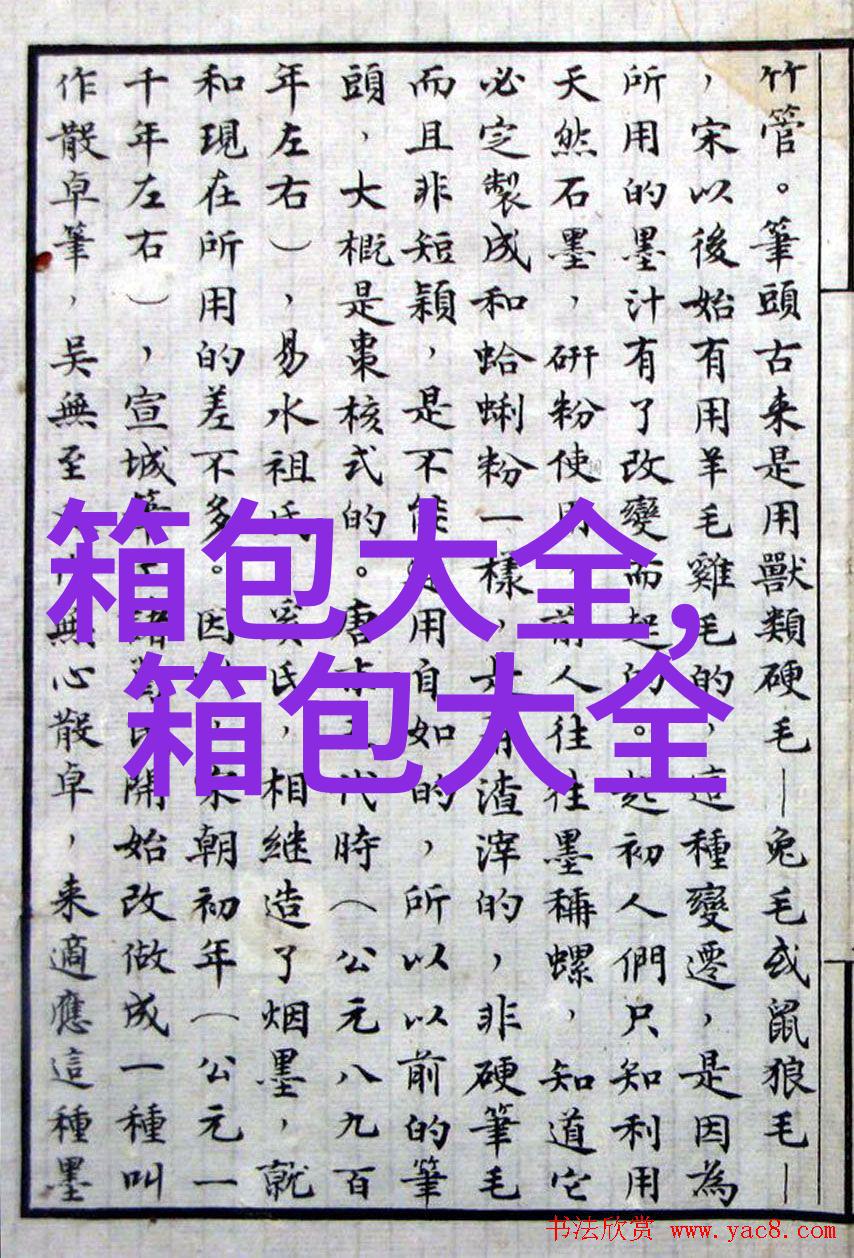 竹管。筆頭古来是用獸類硬毛—兔毛或鼠狼毛—
，宋以後始有用羊毛雞毛的，這種變遷，是因為
所用的墨汁有了改變而起的。起初人們只知利用
天然石墨，研粉使用，前人往往墨稱螺，知道它
必定製成和蛤蜊粉一樣，是有渣滓的，非硬筆毛
而且非短穎，是不能用自如的，所以以前的筆
頭，大概是棗核式的。唐末五代時（公元八九百
年左右），易水祖氏奚氏，相継造了烟墨，就
和現在所用的差不多。因，宋朝初年（公元一
千年左右），宣城筆諸葛氏開始改做成一種叫
作散卓筆，吳無至無心散卓，来適應這種墨
箱包大全,
箱包大全
书法欣赏 www.yac8.com